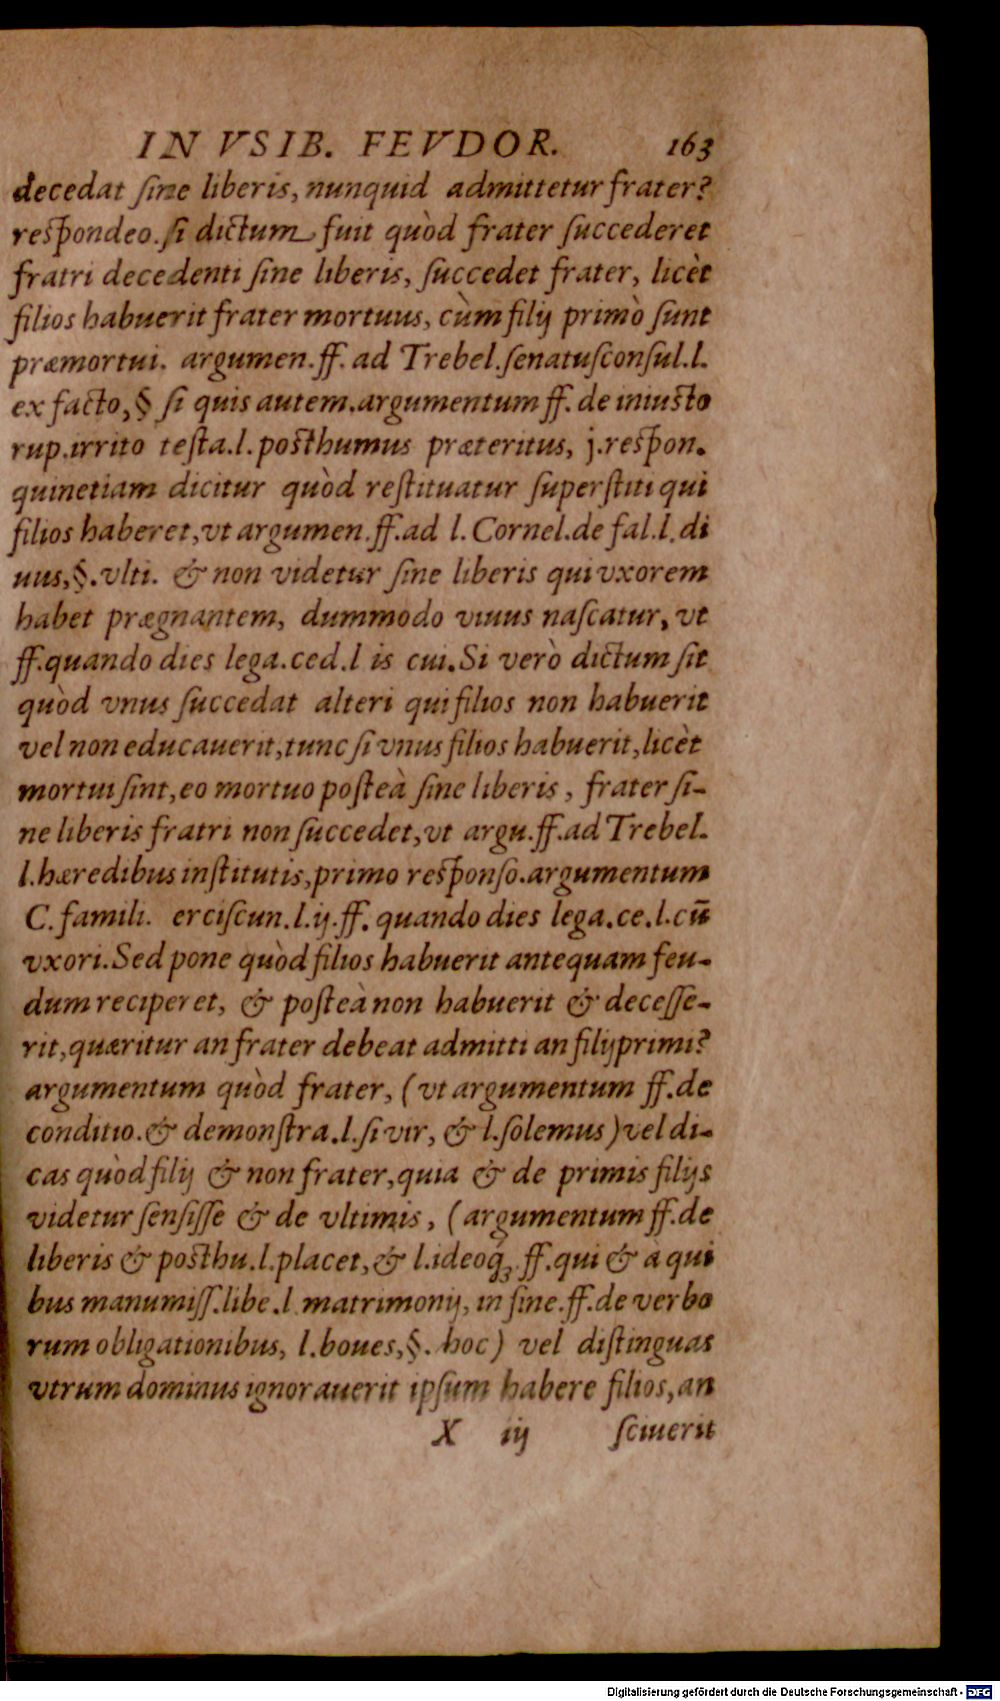 IN VSIB. FEVDOR. 163
decedat ſine liberis, nunquid admittetur frater?
reſpondeo. ſi dictum fuit quòd frater ſuccederet
fratri decedenti ſine liberis, ſuccedet frater, licèt
filios habuerit frater mortuus, cùm filij primò ſunt
præmortui. argumen. ff. ad Trebel. ſenatuſconſul. l.
ex facto, § ſi quis autem. argumentum ff. de iniuſto
rup. irrito teſta. l. poſthumus præteritus, j. reſpon.
quinetiam dicitur quòd reſtituatur ſuperſtiti qui
filios haberet, vt argumen. ff. ad l. Cornel. de fal. l. di
uus, §. vlti. & non videtur ſine liberis qui vxorem
habet prægnantem, dummodo viuus naſcatur, vt
ff. quando dies lega. ced. l is cui. Si verò dictum ſit
quòd vnus ſuccedat alteri qui filios non habuerit
vel non educauerit, tunc ſi vnus filios habuerit, licèt
mortui ſint, eo mortuo poſteà ſine liberis, frater ſi-
ne liberis fratri non ſuccedet, vt argu. ff. ad Trebel.
l. hæredibus inſtitutis, primo reſponſo. argumentum
C. famili. erciſcun. l. ij. ff. quando dies lega. ce. l. cū
vxori. Sed pone quòd filios habuerit antequam feu-
dum reciperet, & poſteà non habuerit & deceſſe-
rit, quæritur an frater debeat admitti an filij primi?
argumentum quòd frater, (vt argumentum ff. de
conditio. & demonſtra. l. ſi vir, & l. ſolemus) vel di-
cas quòd filij & non frater, quia & de primis filijs
videtur ſenſiſſe & de vltimis, (argumentum ff. de
liberis & poſthu. l. placet, & l. ideoq́ꝫ. ff. qui & à qui
bus manumiſſ. libe. l. matrimonij, in fine. ff. de verbo
rum obligationibus, l. boues, §. hoc) vel diſtinguas
vtrum dominus ignorauerit ipſum habere filios, an
X iij ſciuerit
Digitalisierung gefördert durch die Deutsche Forschungsgemeinschaft - DFG